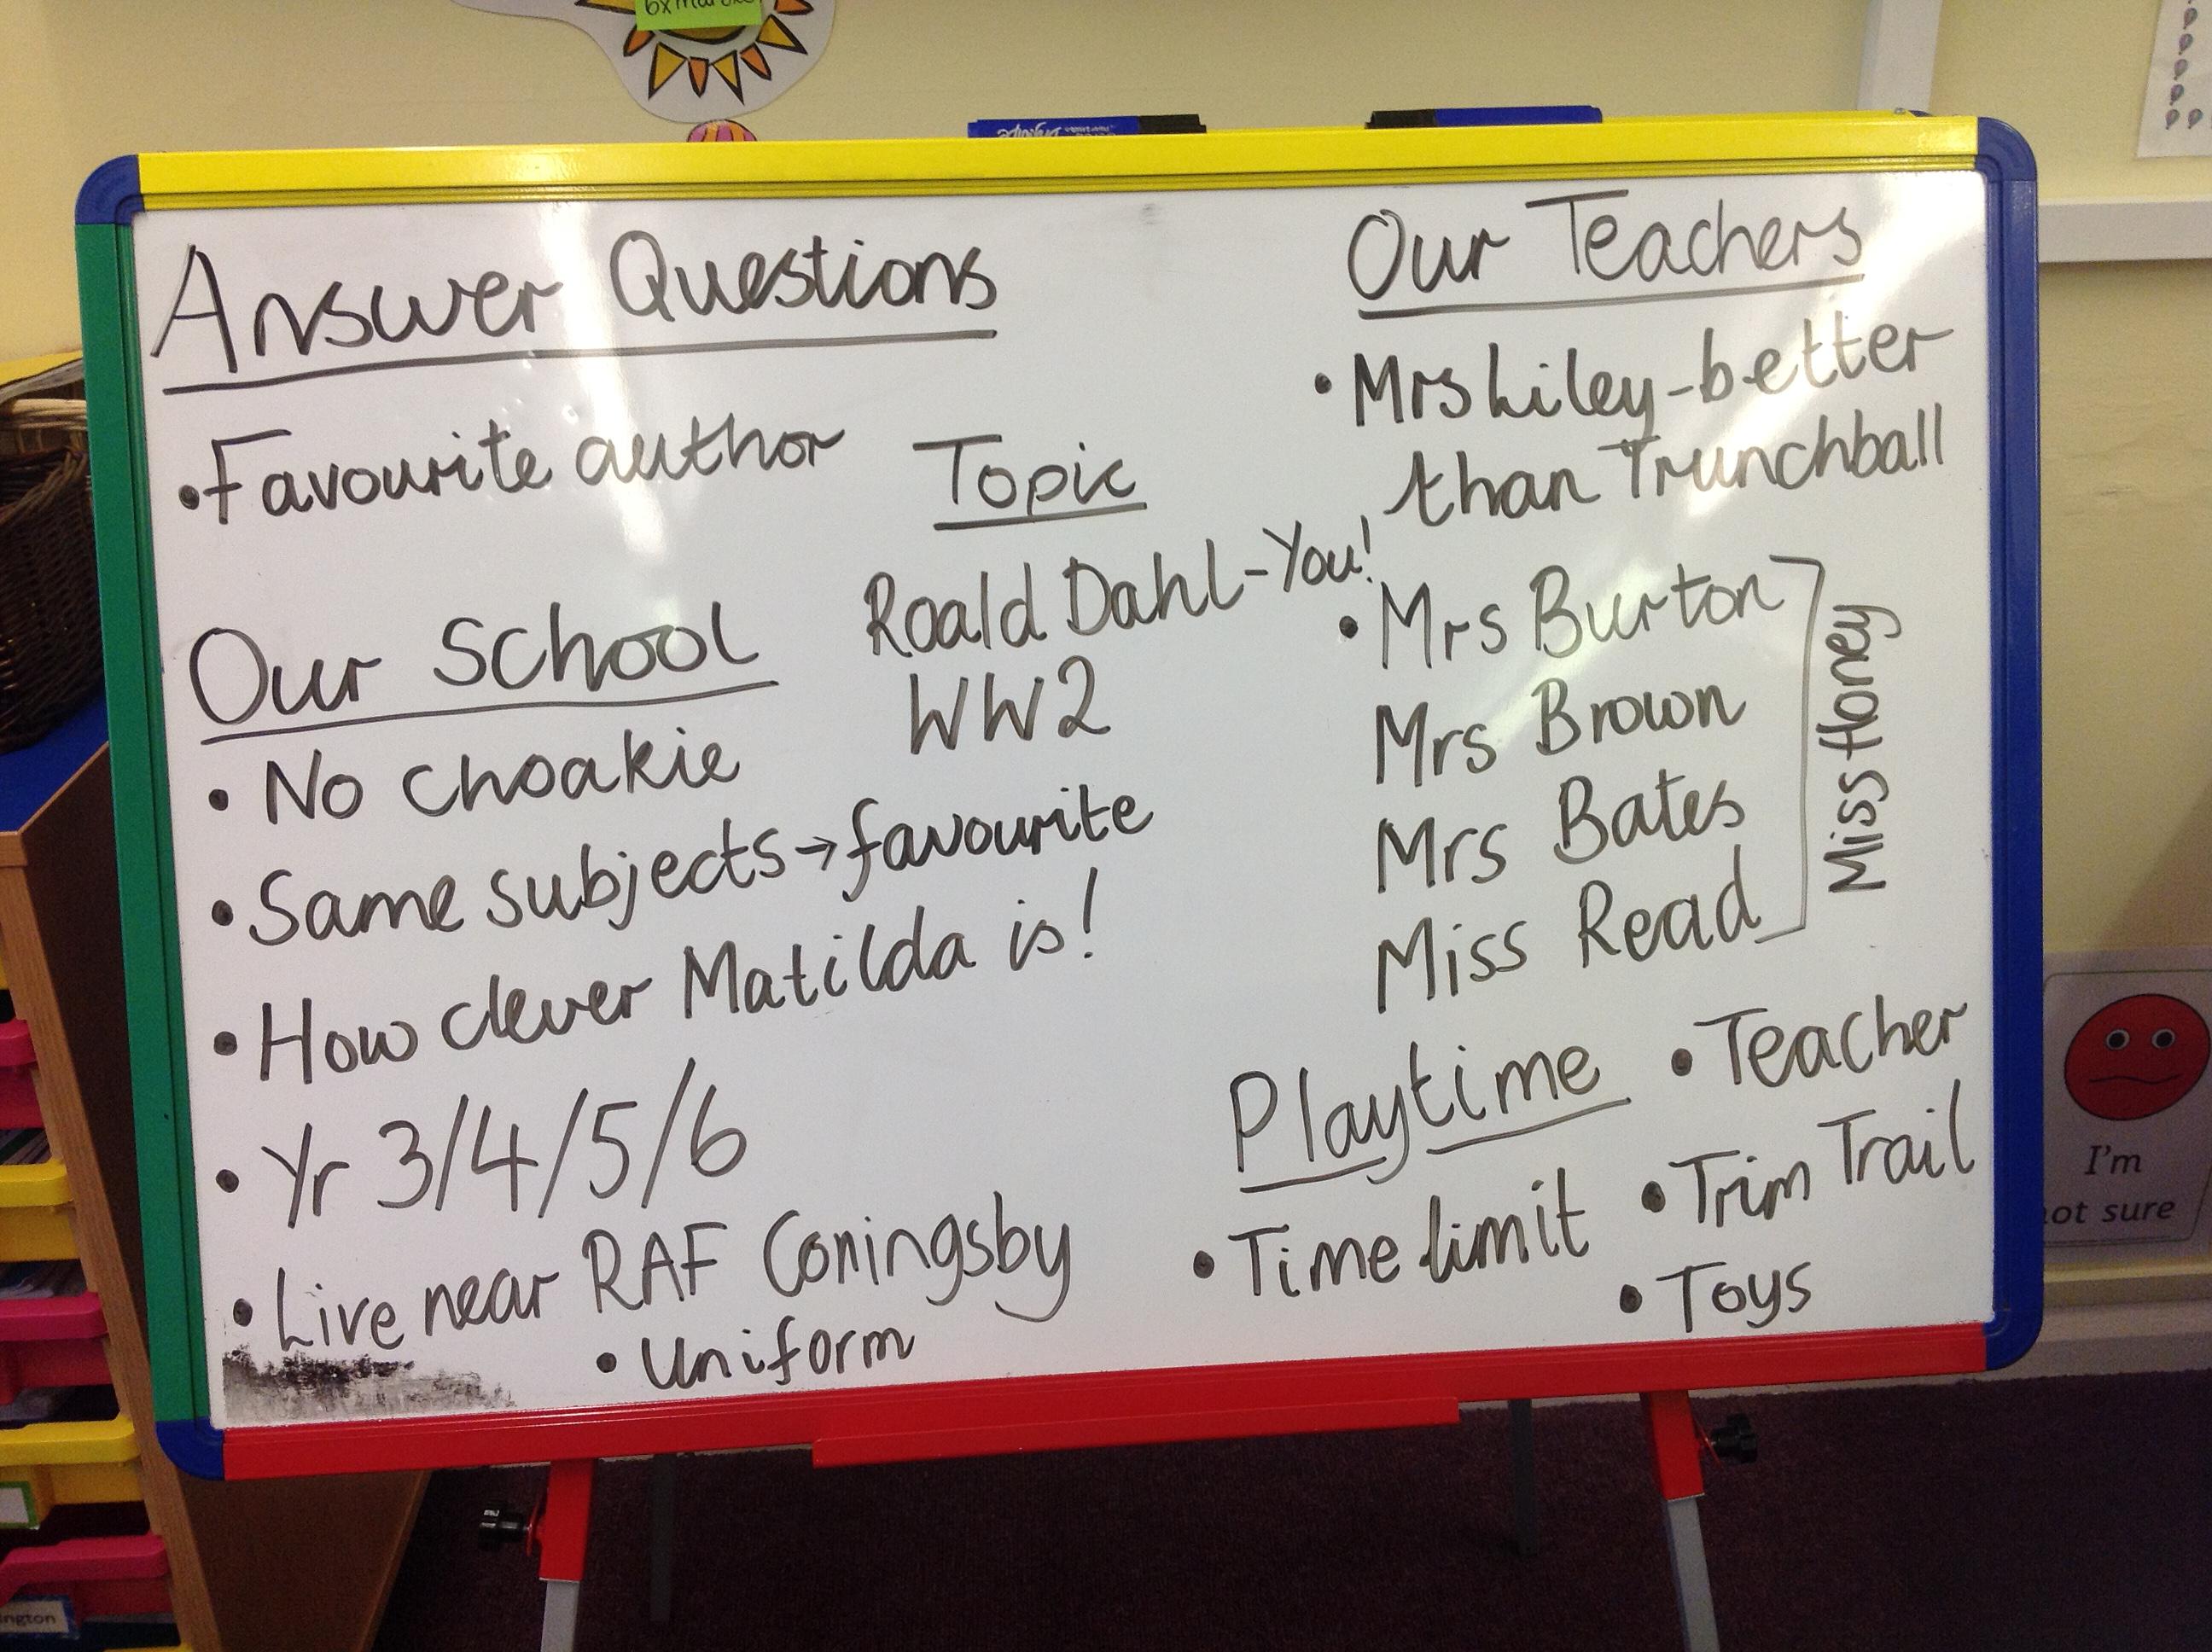 Answer Questions
• Favourite author
Topic
Roald Dahl - You!
WW2
Our School
• No choakie
• Same subjects → favourite
• How clever Matilda is!
• Yr 3/4/5/6
• Live near RAF Coningsby
• Uniform
Our Teachers
• Mrs Liley - better
than Trunchball
• Mrs Burton
Mrs Brown
Mrs Bates
Miss Read
Miss Honey
Playtime
• Teacher
• Time limit
• Trim Trail
• Toys
I'm
not sure